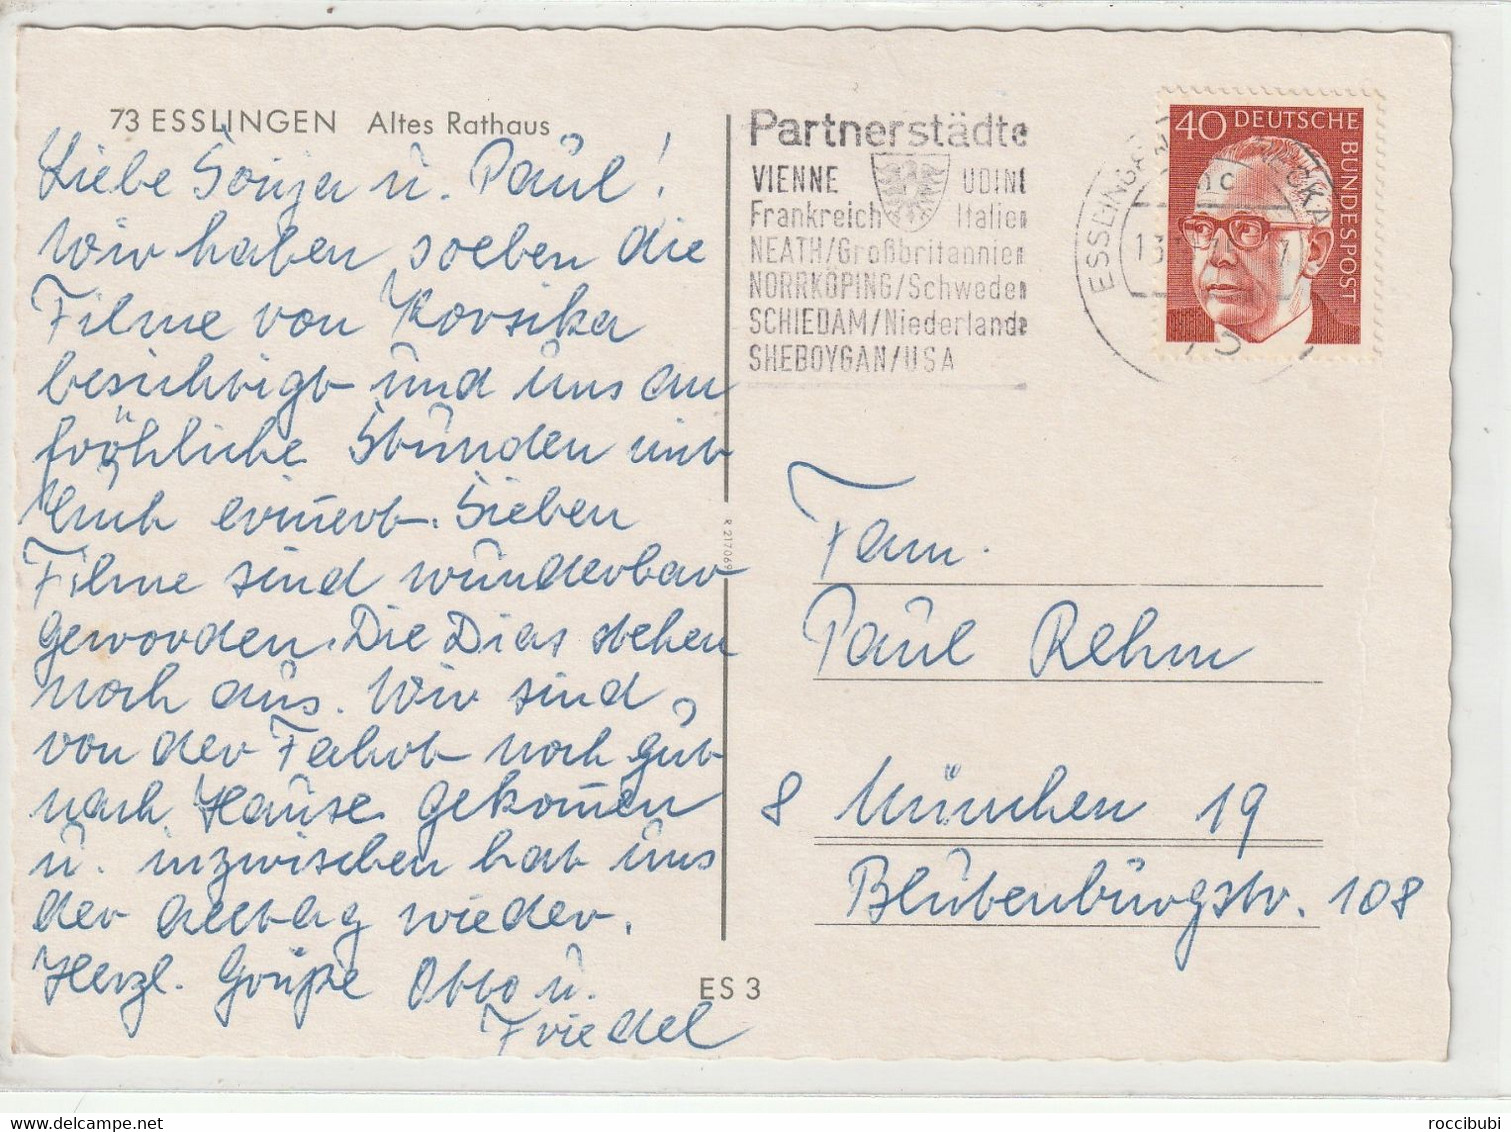 73 ESSLINGEN Altes Rathaus
Liebe Sonja u. Paul!
Wir haben soeben die
Filme von Korsika
besichtigt und uns an
fröhliche Stunden mit
Euch erinnert. Sieben
Filme sind wunderbar
geworden. Die Dias stehen
noch aus. Wir sind
von der Fahrt noch gut
nach Hause gekommen
u. inzwischen hat uns
der Alltag wieder.
Herzl. Grüße Otto u.
Friedel
ES 3
R 217069
Partnerstädte
VIENNE UDINE
Frankreich Italien
NEATH/Großbritannien
NORRKÖPING/Schweden
SCHIEDAM/Niederlande
SHEBOYGAN/USA
ESSLINGEN
13
73
40 DEUTSCHE
BUNDESPOST
Fam.
Paul Rehm
8 München 19
Blutenburgstr. 108
roccibubi